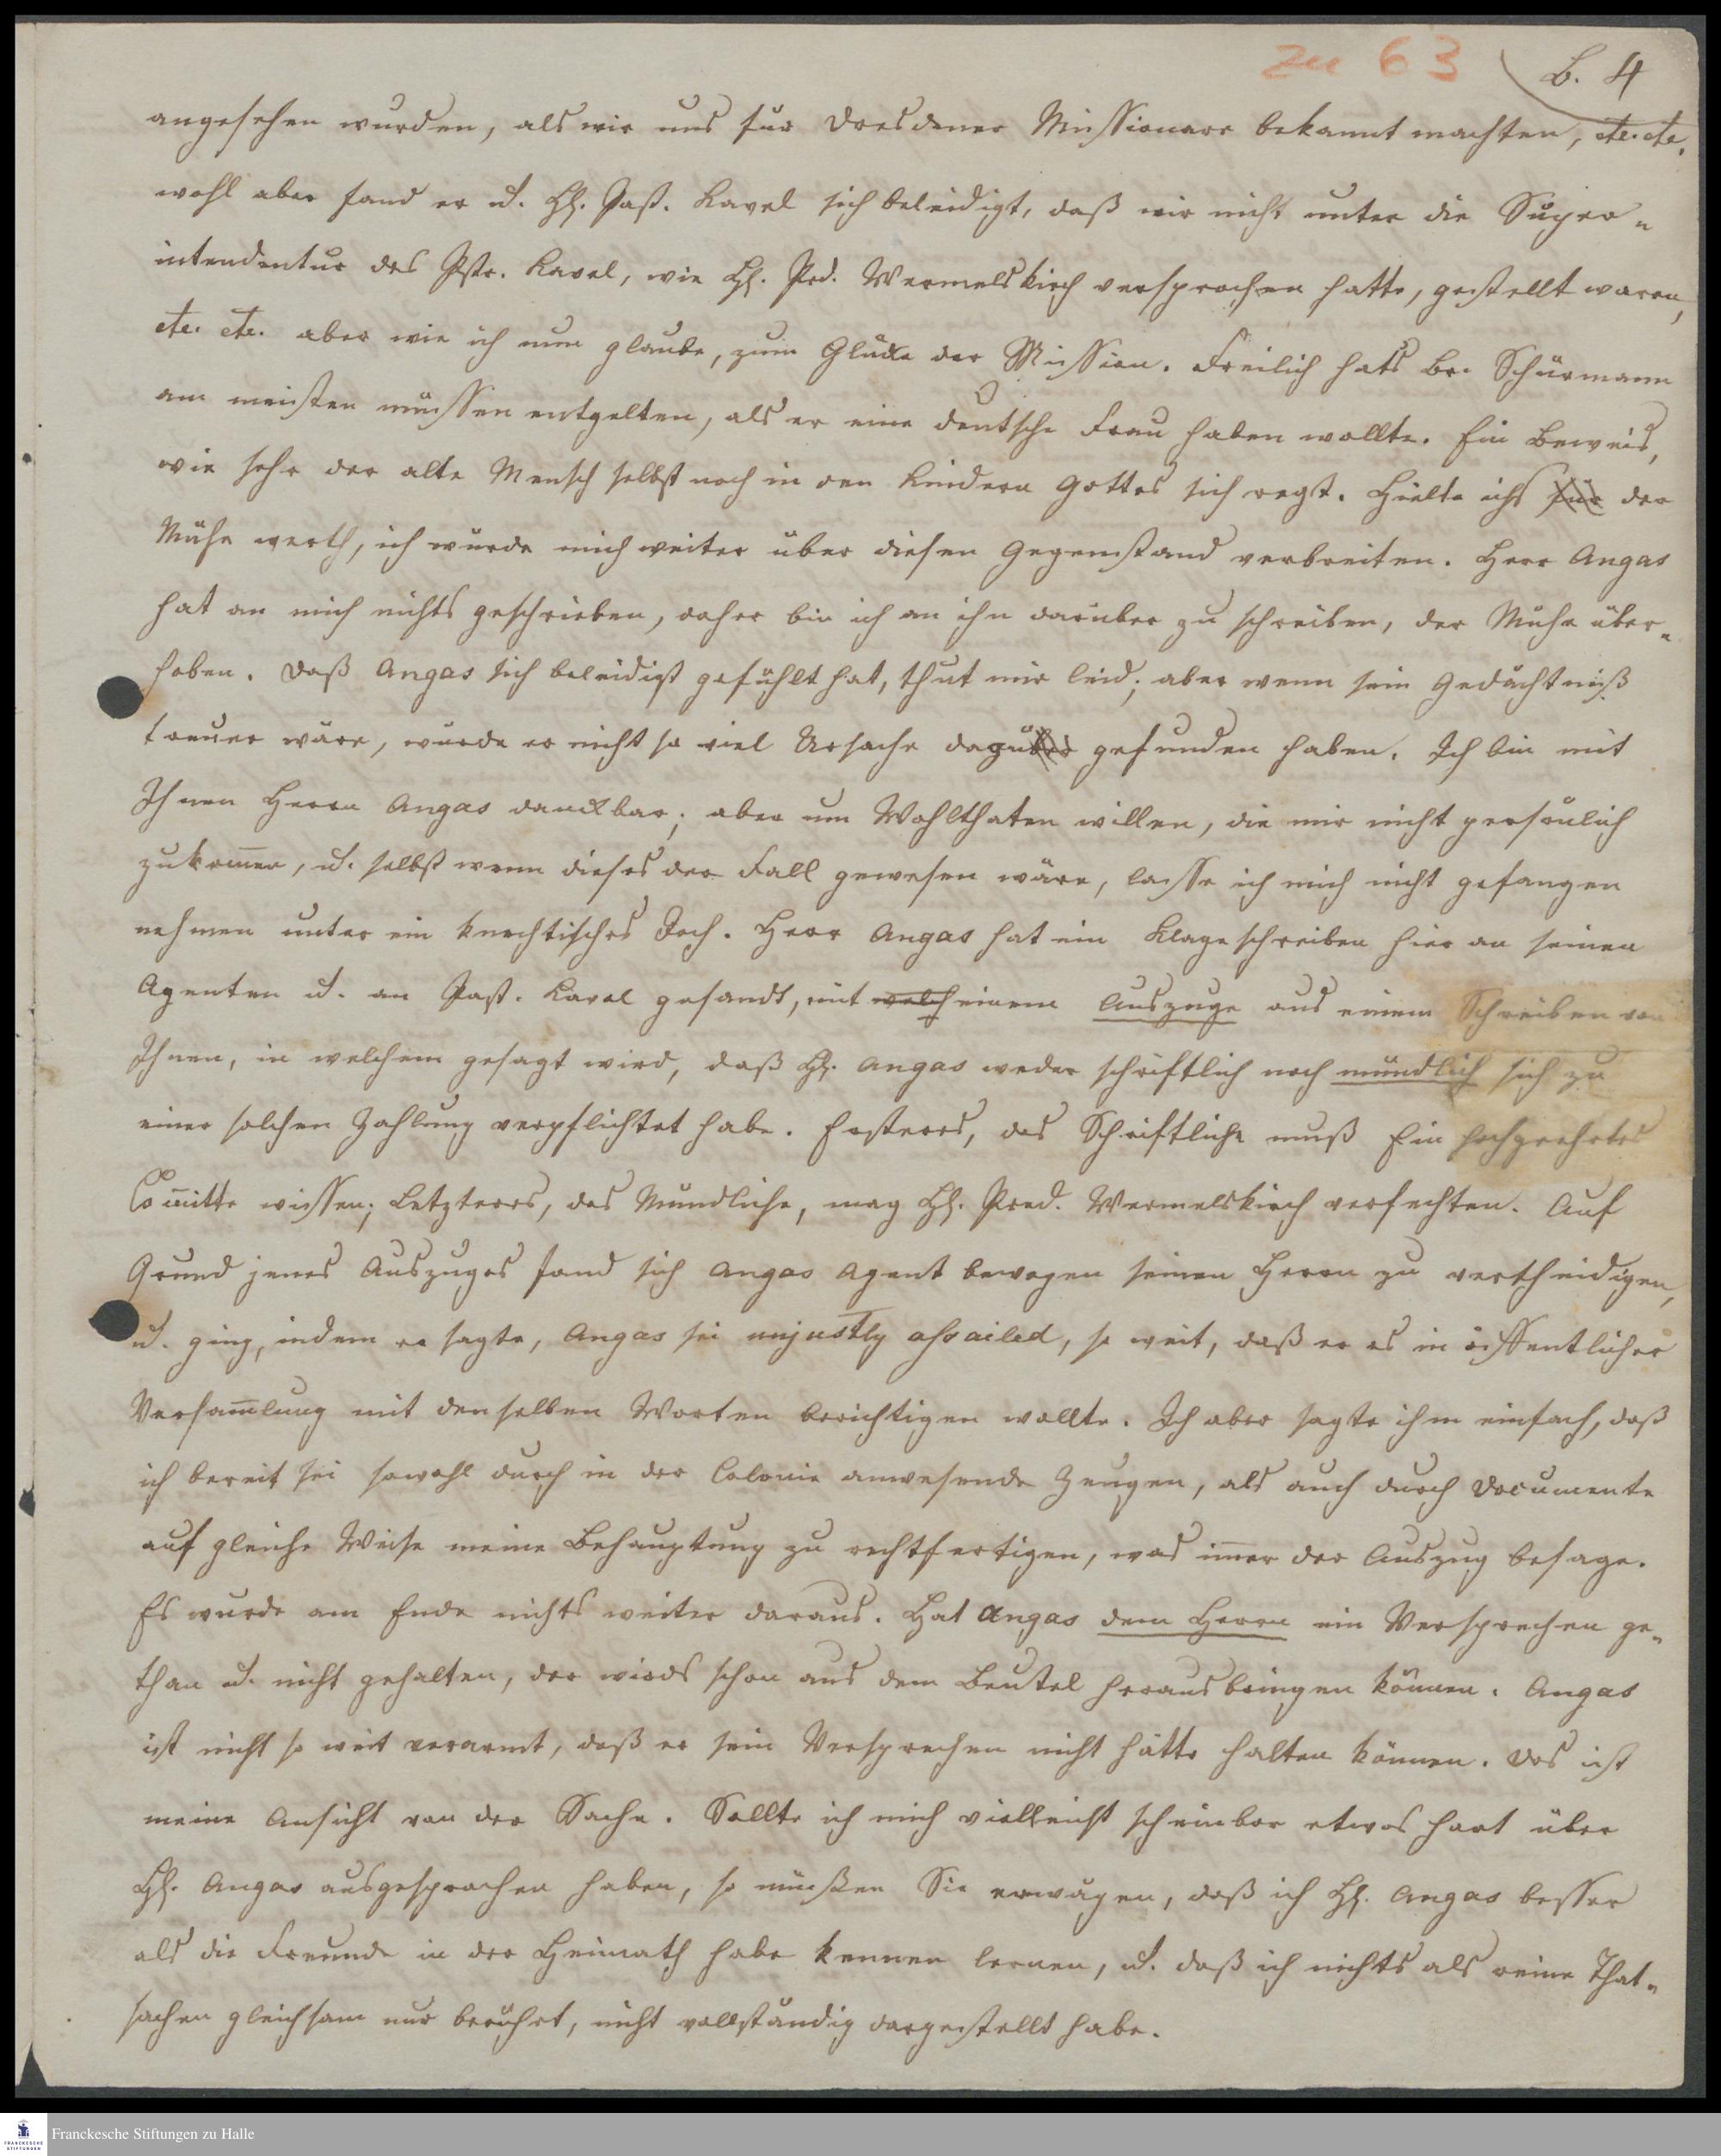 zu 63
B. 4
angesehen wurden, als wir uns fur Dresdener Missionare bekannt machten, etc. etc.
wohl aber fand er u. H. Past. Kavel sich beleidigt, daß wir nicht unter die Supra-
intendentur des Pstr. Kavel, wie H. Prd. Wermelskirch versprochen hatte, gestellt waren,
etc. etc. aber wie ich nun glaube, zum Glücke der Mission. Freilich hats Br. Schürmann
am meisten müssen entgelten, als er eine deutsche Frau haben wollte. Ein Beweis,
wie sehr der alte Mensch selbst noch in den Kindern Gottes sich regt. Hielte ichs für der
Mühe werth, ich würde mich weiter über diesen Gegenstand verbreiten. Herr Angas
hat an mich nichts geschrieben, daher bin ich an ihn darüber zu schreiben, der Mühe über-
hoben. Daß Angas sich beleidigt gefühlt hat, thut mir leid; aber wenn sein Gedächtniß
treuer wäre, würde er nicht so viel Ursache dazu gefunden haben. Ich bin mit
Ihnen Herrn Angas danckbar; aber um Wohlthaten willen, die mir nicht persönlich
zukom̄en, u. selbst wenn dieses der Fall gewesen wäre, lasse ich mich nicht gefangen
nehmen unter ein knechtisches Joch. Herr Angas hat ein Klageschreiben hier an seinen
Agenten u. an Past. Kavel gesandt, mit welch einem Auszuge aus einem Schreiben von
Ihnen, in welchem gesagt wird, daß H. Angas weder schriftlich noch mündlich sich zu
einer solchen Zahlung verpflichtet habe. Ersteres, das Schriftliche muß Ein hochgeehrtes
Com̄itte wissen; Letzteres, das Mündliche, mag H. Pred. Wermelskirch verfechten. Auf
Grund jenes Auszuges fand sich Angas Agent bewogen seinen Herrn zu vertheidigen,
u. ging, indem er sagte, Angas sei unjustly assailed, so weit, daß er es in öffentlicher
Versam̄lung mit denselben Worten berichtigen wollte. Ich aber sagte ihm einfach, daß
ich bereit sei sowohl durch in der Colonie anwesende Zeugen, als auch durch Documente
auf gleiche Weise meine Behauptung zu rechtfertigen, was im̄er der Auszug besage.
Es wurde am Ende nichts weiter daraus. Hat Angas dem Herrn ein Versprechen ge-
than u. nicht gehalten, der wirds schon aus dem Beutel herausbringen können. Angas
ist nicht so weit verarmt, daß er sein Versprechen nicht hätte halten können. Das ist
meine Ansicht von der Sache. Sollte ich mich vielleicht scheinbar etwas hart über
H. Angas ausgesprochen haben, so müßen Sie erwägen, daß ich H. Angas besser
als die Freunde in der Heimath habe kennen lernen, u. daß ich nichts als reine That-
sachen gleichsam nur berührt, nicht vollständig dargestellt habe.
Franckesche Stiftungen zu Halle